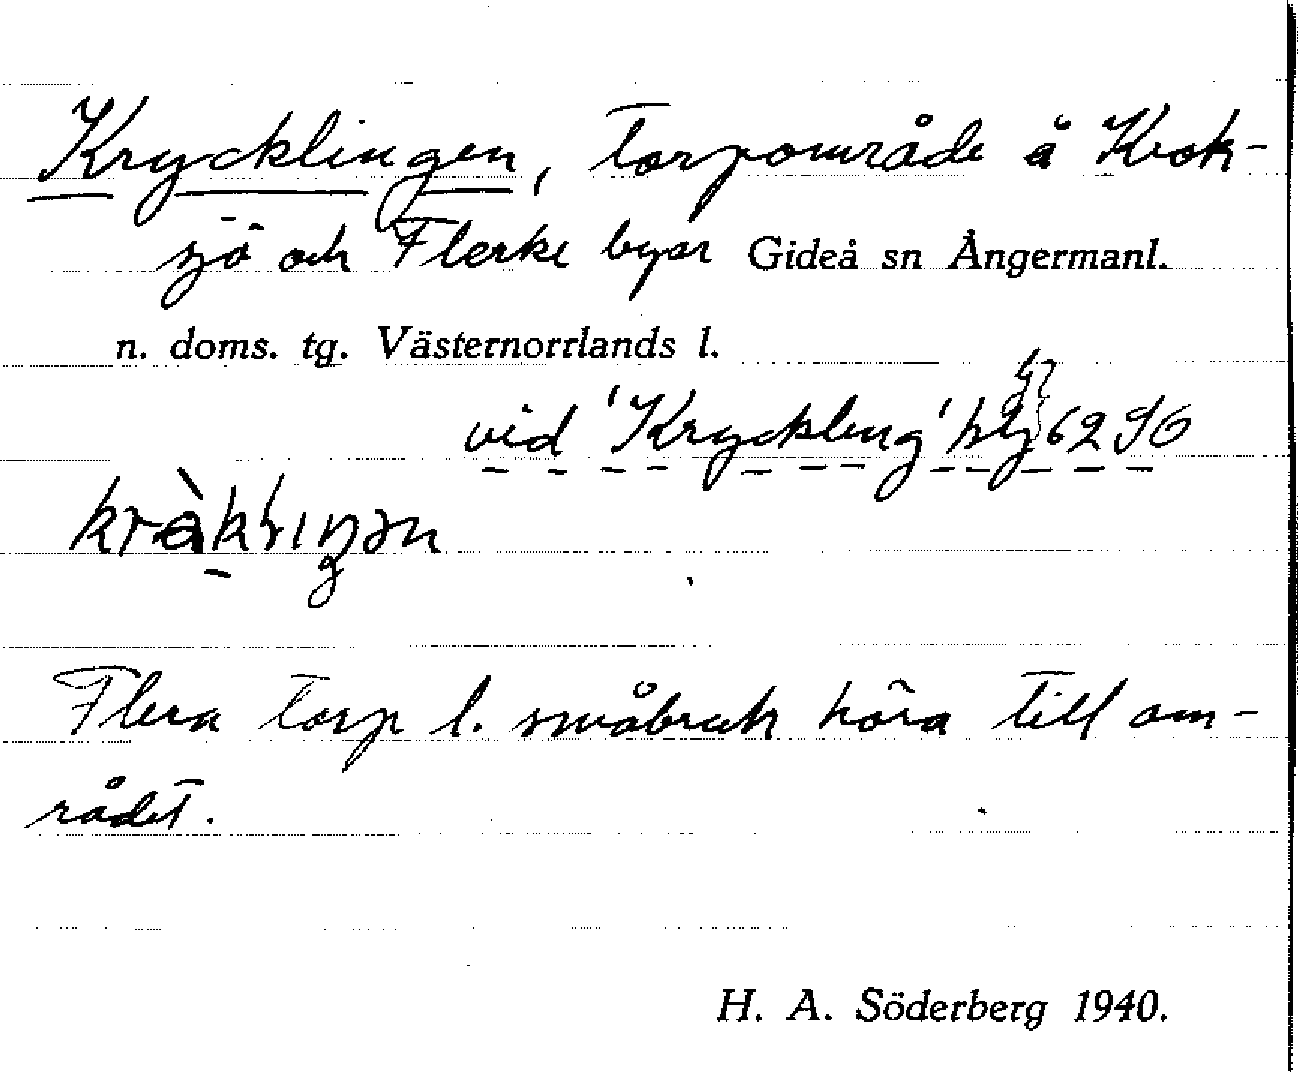 Krycklingen, torpområde å Krok-
sjö och Flerke byar Gideå sn Ångermanl.
n. doms. tg. Västernorrlands l.
vid 'Kryckling' 6290
Flera torp l. småbruk höra till om-
rådet.
H. A. Söderberg 1940.